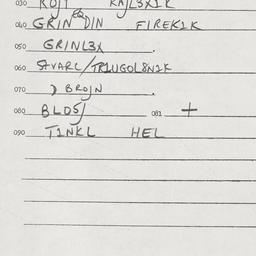 030 ROJT KAJL3X1K
040 GRIN EQ DIN FIREK1K
050 GRINL3X
060 SVARL/TR1UGOL8N1K
070 ) BROJN
080 BLOSJ 081 +
090 T1NKL HEL